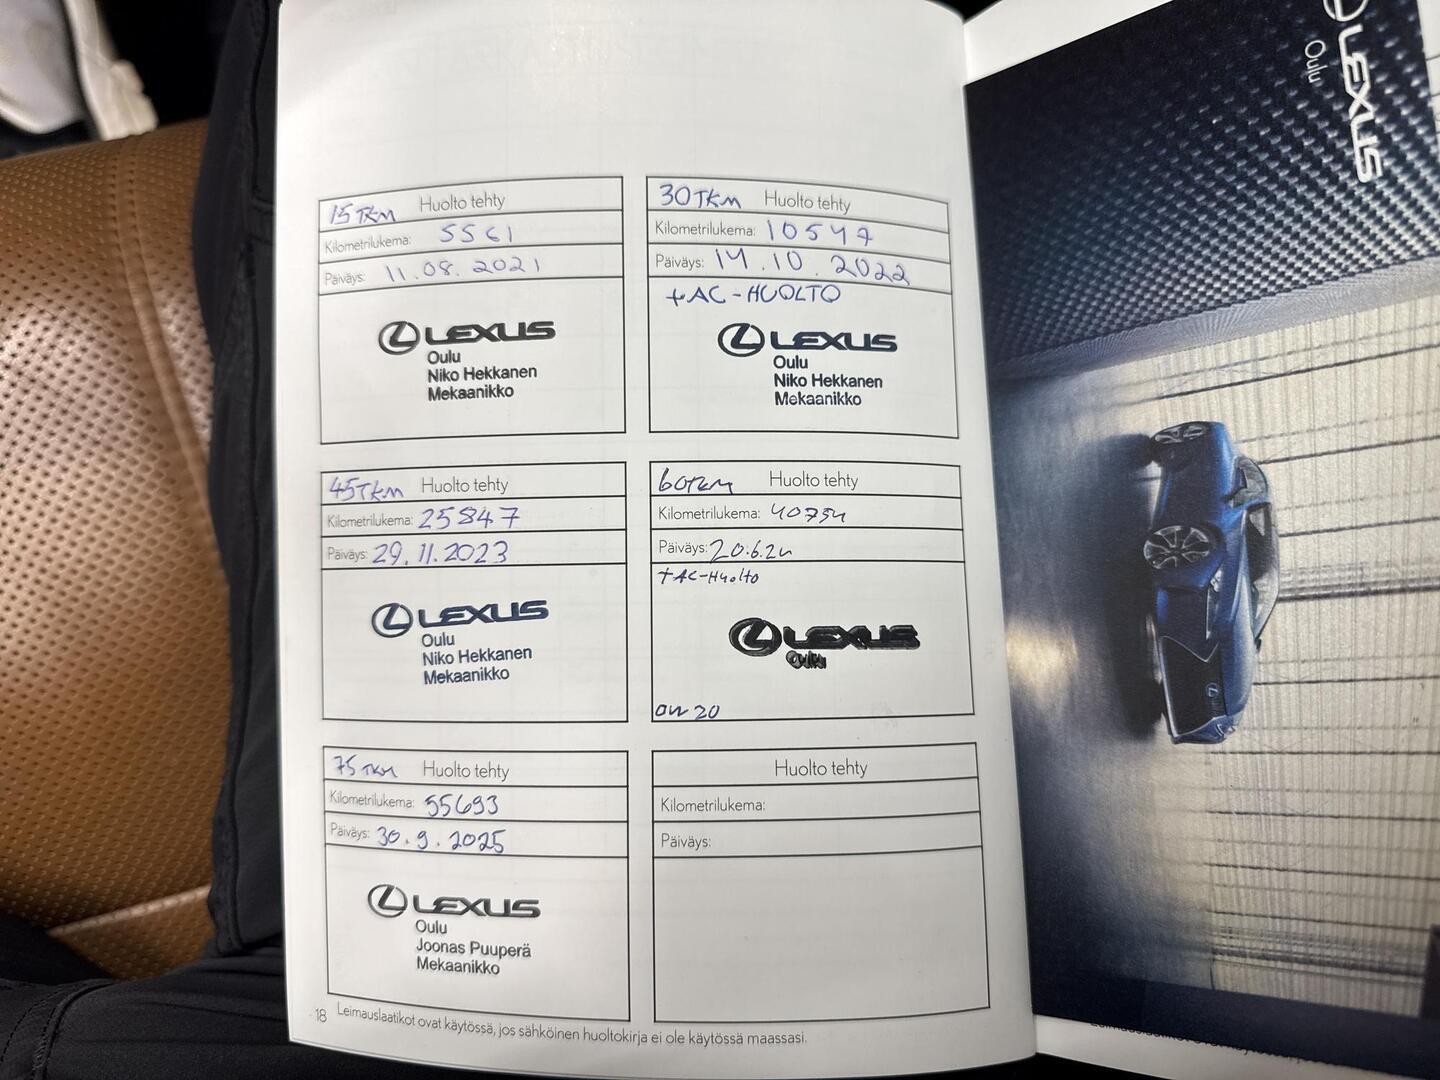 15TKM Huolto tehty
Kilometrilukema: 5561
Päiväys: 11.08.2021
LEXUS
Oulu
Niko Hekkanen
Mekaanikko
30TKM Huolto tehty
Kilometrilukema: 10547
Päiväys: 14.10.2022
+AC-HUOLTO
LEXUS
Oulu
Niko Hekkanen
Mekaanikko
45TKM Huolto tehty
Kilometrilukema: 25847
Päiväys: 29.11.2023
LEXUS
Oulu
Niko Hekkanen
Mekaanikko
60TKM Huolto tehty
Kilometrilukema: 40754
Päiväys: 20.6.24
+AC-Huolto
LEXUS
Oulu
0W20
75TKM Huolto tehty
Kilometrilukema: 55693
Päiväys: 30.9.2025
LEXUS
Oulu
Joonas Puuperä
Mekaanikko
Huolto tehty
Kilometrilukema:
Päiväys:
18 Leimauslaatikot ovat käytössä, jos sähköinen huoltokirja ei ole käytössä maassasi.
LEXUS
Oulu